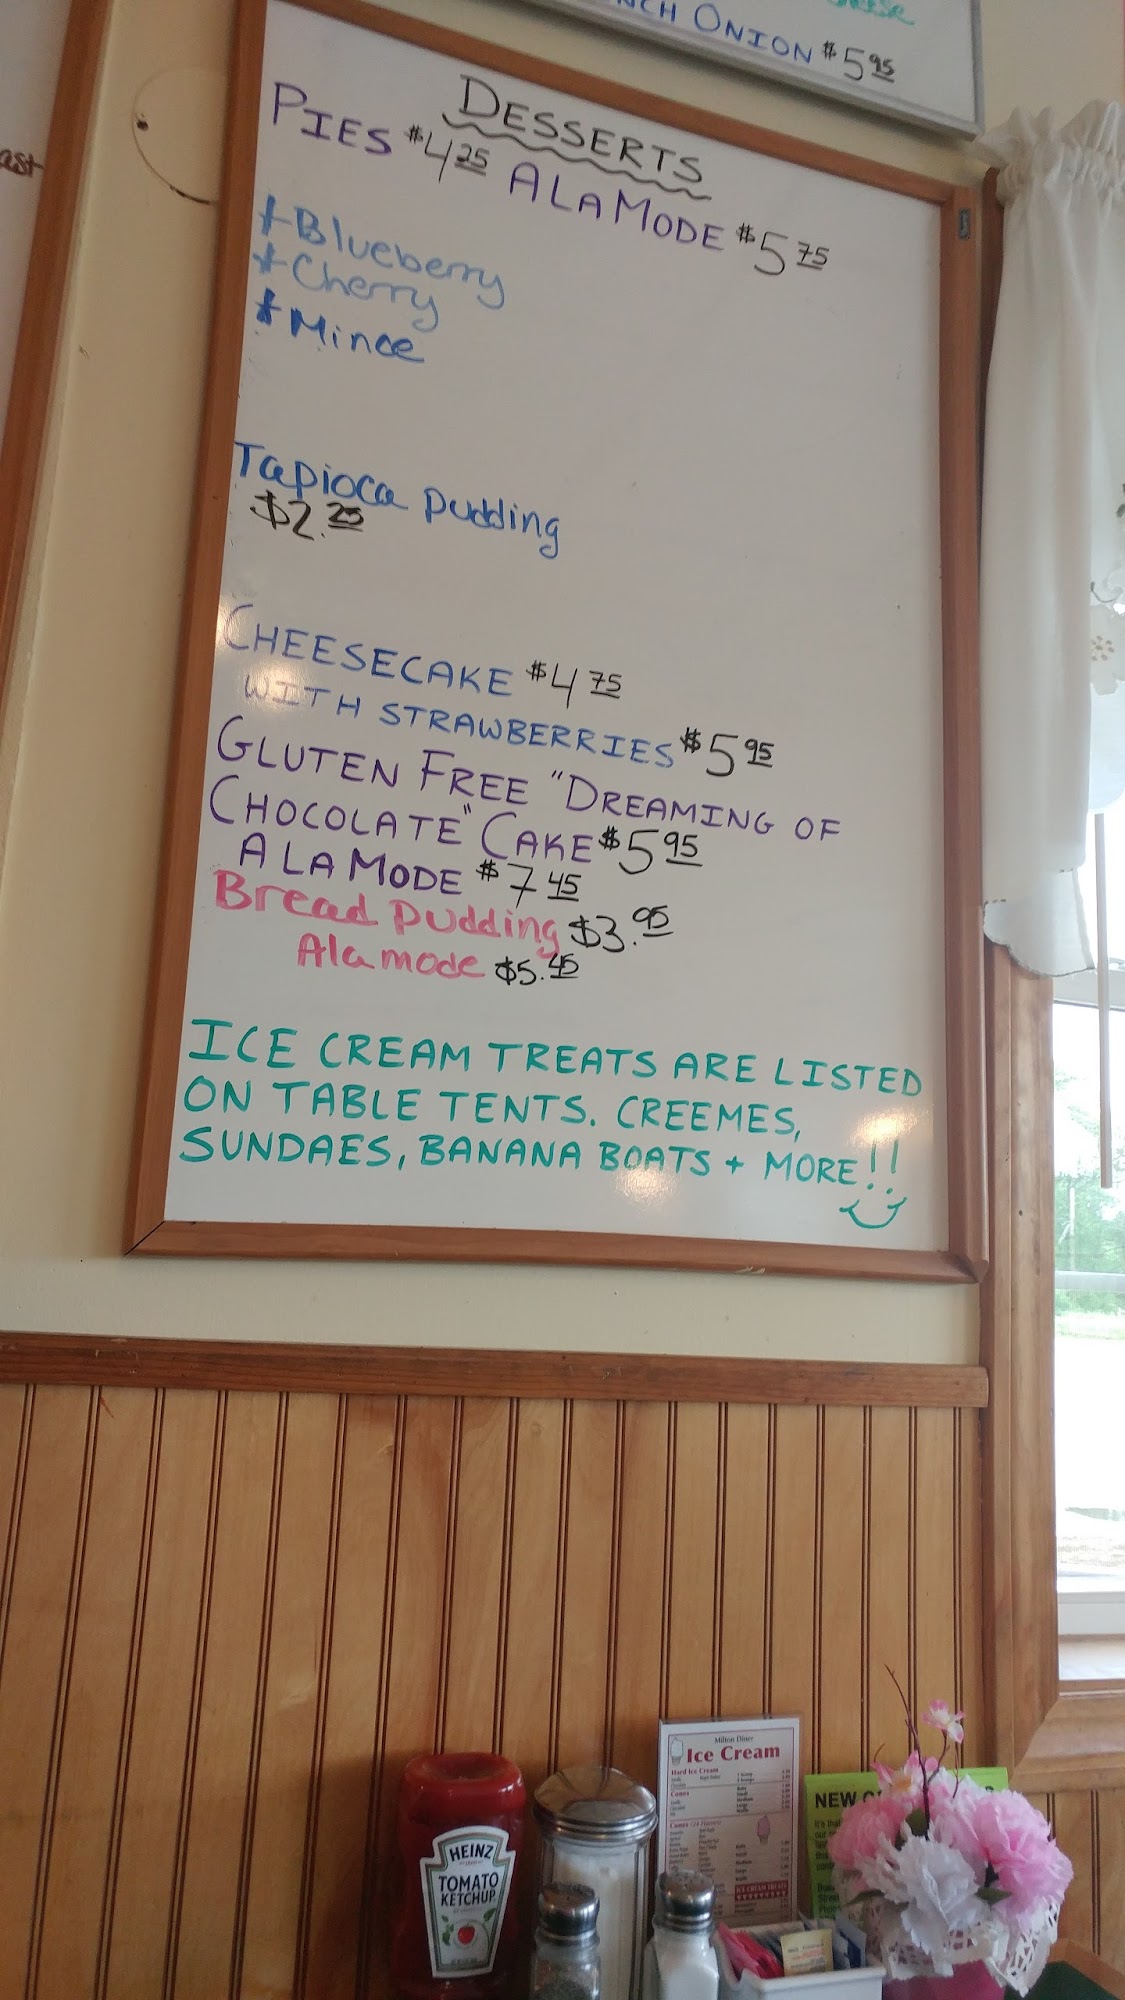 ONION $5.95
DESSERTS
PIES $4.25 ALA MODE $5.75
*Blueberry
*Cherry
*Mince
Tapioca pudding
$2.25
CHEESECAKE $4.75
WITH STRAWBERRIES $5.95
GLUTEN FREE "DREAMING OF
CHOCOLATE" CAKE $5.95
A LA MODE $7.45
Bread pudding $3.95
Ala mode $5.45
ICE CREAM TREATS ARE LISTED
ON TABLE TENTS. CREEMES,
SUNDAES, BANANA BOATS + MORE!!
Milton Diner
Ice Cream
Hard Ice Cream
Cones
NEW
HEINZ
TOMATO
KETCHUP